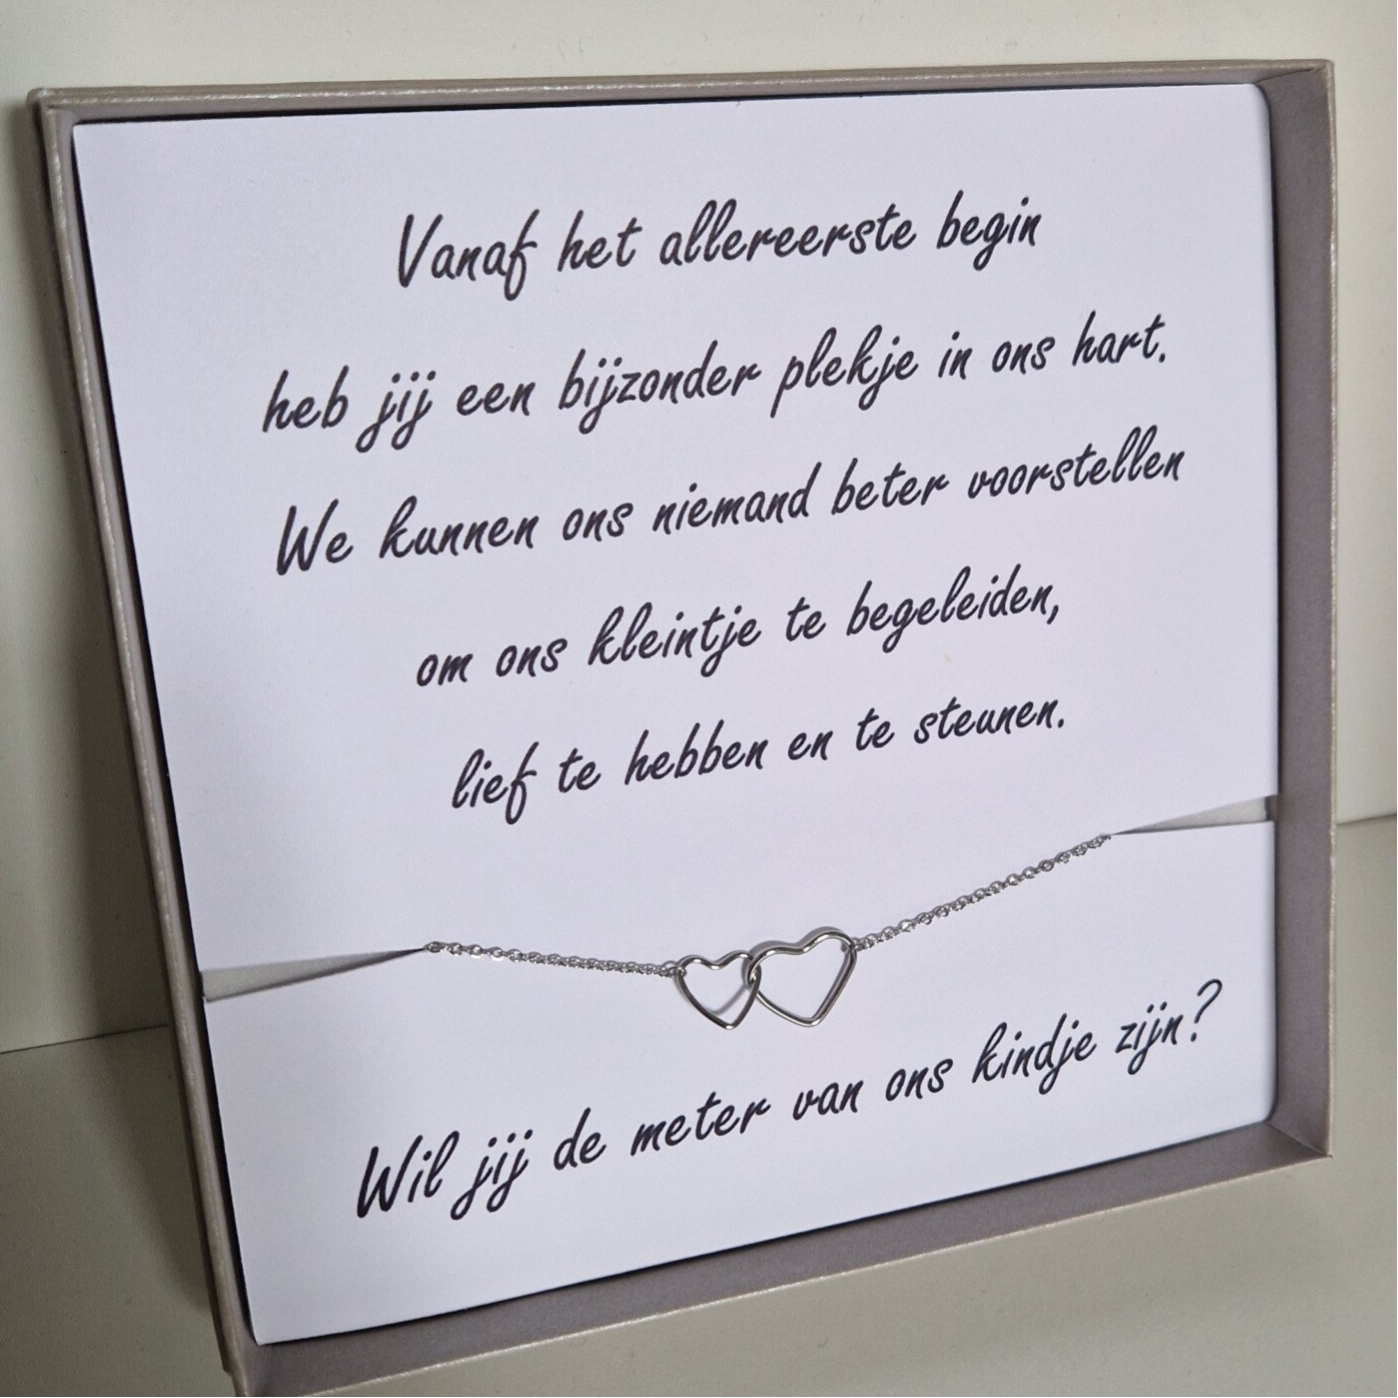 Vanaf het allereerste begin
heb jij een bijzonder plekje in ons hart.
We kunnen ons niemand beter voorstellen
om ons kleintje te begeleiden,
lief te hebben en te steunen.
Wil jij de meter van ons kindje zijn?